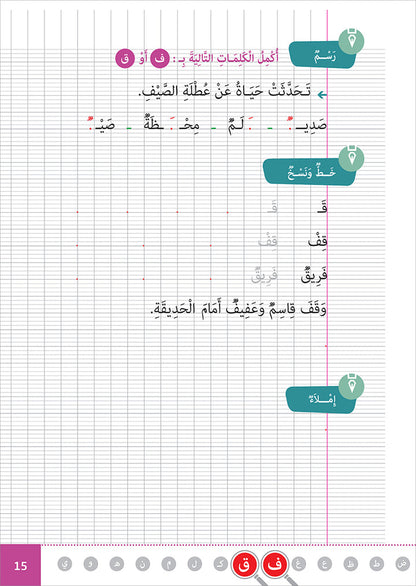 رَسْمٌ
أُكْمِلُ الْكَلِمَاتِ التَّالِيَةَ بِـ: ف أَوْ ق
تَحَدَّثَتْ حَيَاةُ عَنْ عُطْلَةِ الصَّيْفِ.
صَدِيـ..ٌ - ..َلَمٌ - مِحْـ..َـظَةٌ - صَيْـ..ٌ
خَطٌّ وَنَسْخٌ
قَـ قَـ
قِفْ قِفْ
فَرِيقٌ فَرِيقٌ
وَقَفَ قِاسِمٌ وَعَفِيفٌ أَمَامَ الْحَدِيقَةِ.
إِمْلَاءٌ
ض ط ظ ع غ ف ق كـ ل م ن هـ و ي
15